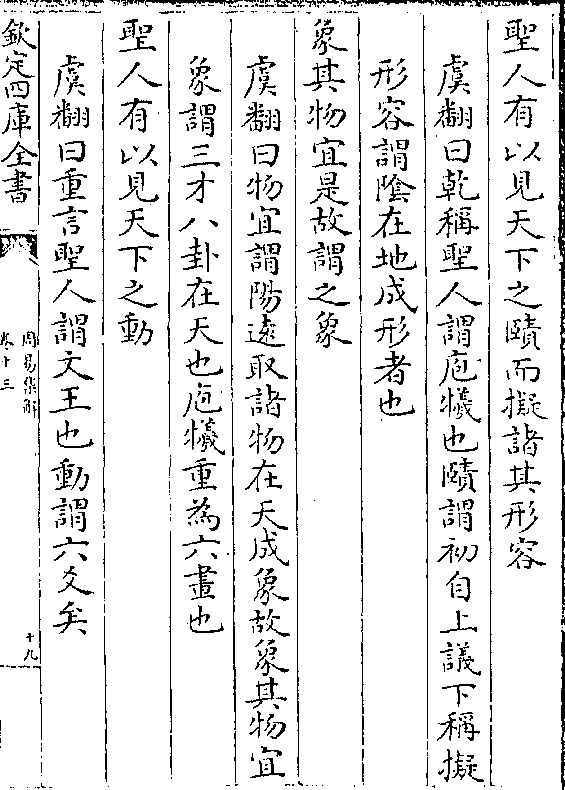 聖人有以見天下之賾而擬諸其形容
虞翻曰乾稱聖人謂庖犧也賾謂初自上議下稱擬
形容謂陰在地成形者也
象其物宜是故謂之象
虞翻曰物宜謂陽逺取諸物在天成象故象其物宜
象謂三才八卦在天也庖犧重為六畫也
聖人有以見天下之動
虞翻曰重言聖人謂文王也動謂六爻矣
欽定四庫全書
周易集解
卷十三
十九